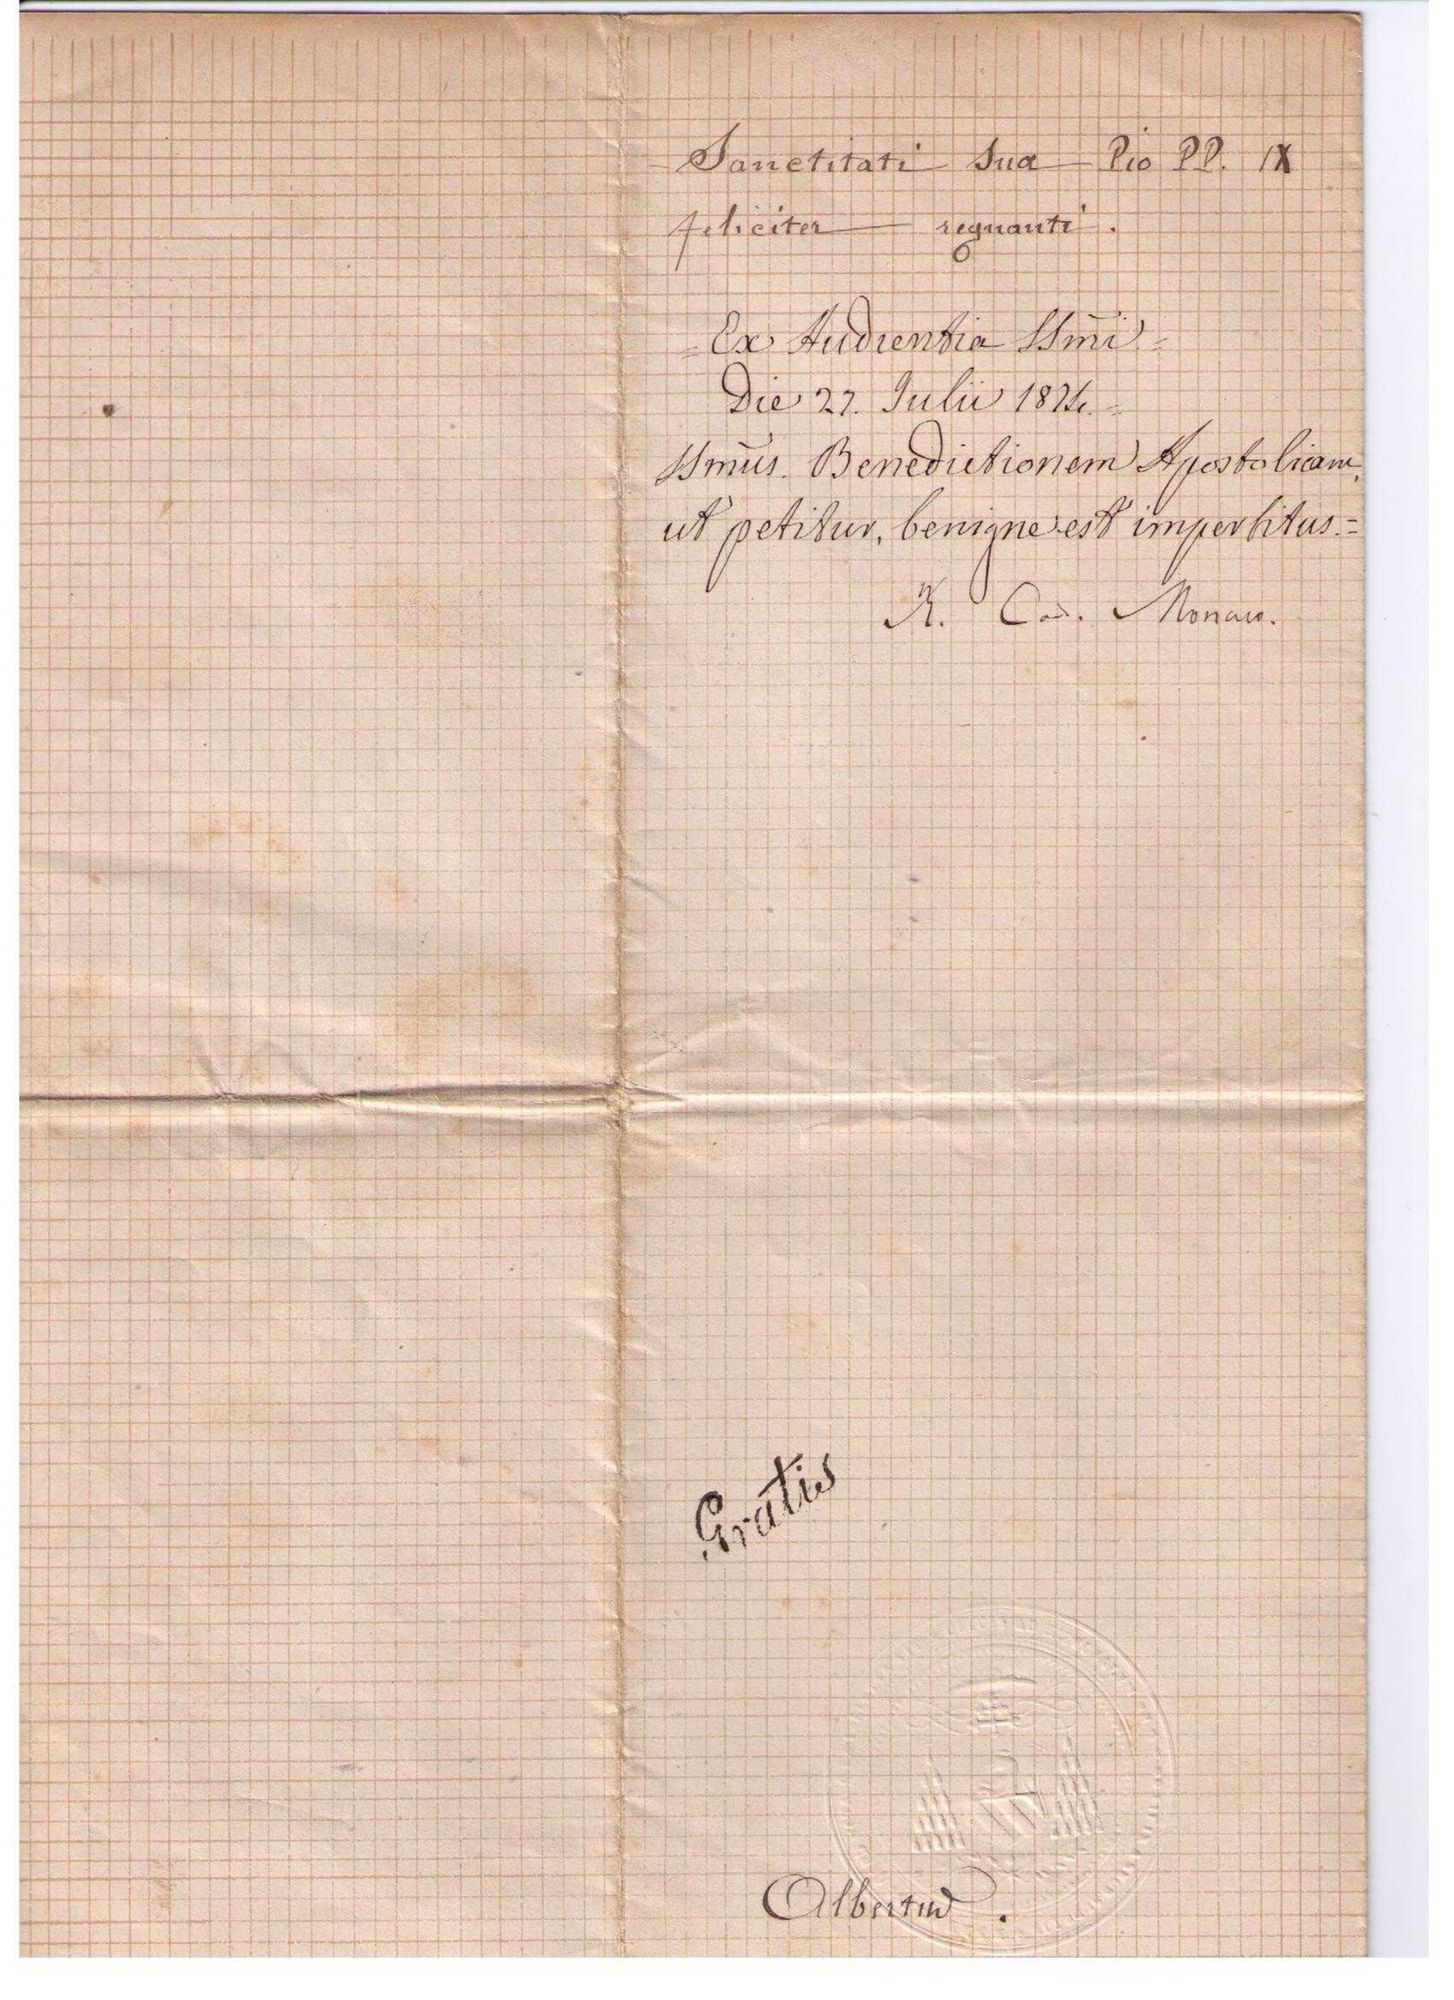 Sanctitati Suæ Pio PP. IX
feliciter regnanti.
= Ex Audientia SSm̃i =
Die 27. Julii 1874. =
SSm̃us. Benedictionem Apostolicam,
ut petitur, benigne est impertitus. =
R. Car. Monaco.
Gratis
Albertus.